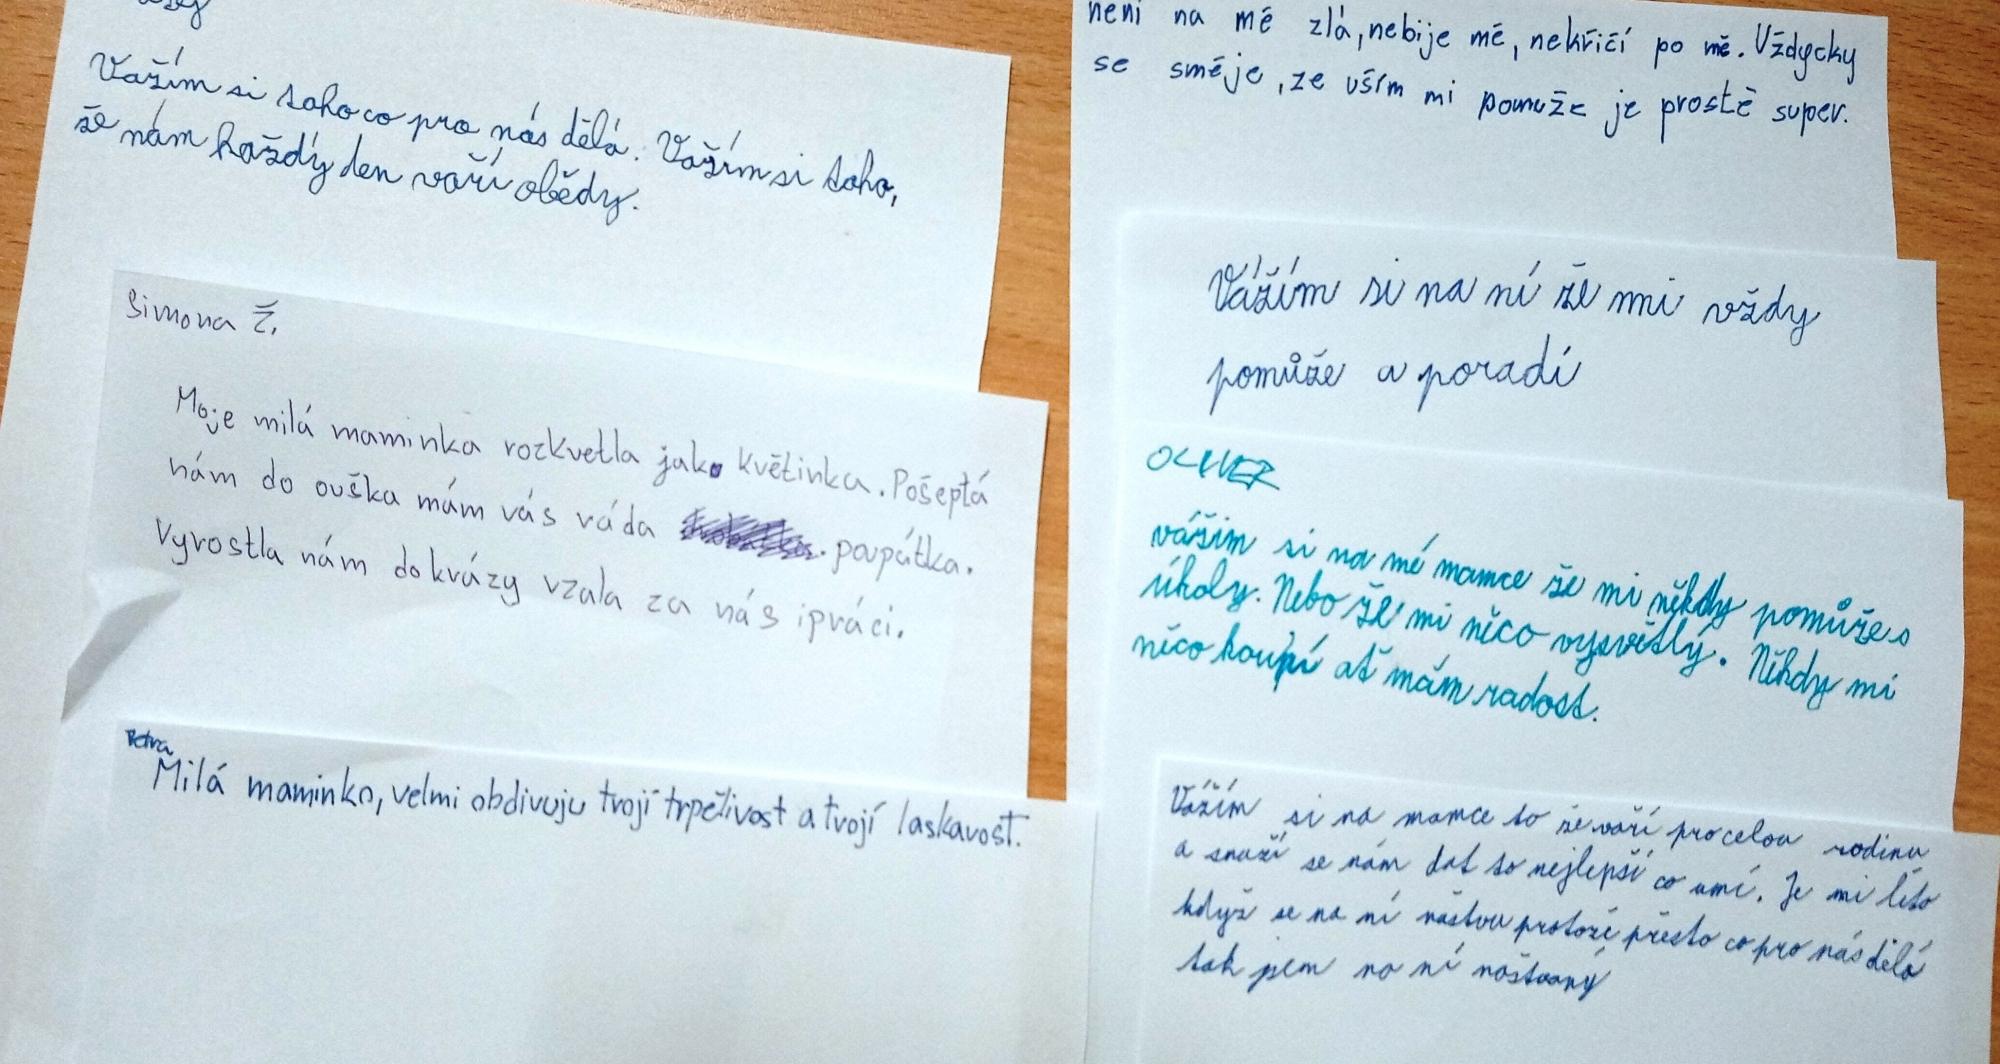 Važím si toho co pro nás dělá. Važím si toho,
že nám každý den vaří obědy.
Simona Č.
Moje milá maminka rozkvetla jako květinka. Pošeptá
nám do ouška mám vás ráda poupátka.
Vyrostla nám do krázy vzala za nás ipráci.
Petra
Milá maminko, velmi obdivuju tvoji trpělivost a tvojí laskavost.
není na mě zlá, nebije mě, nekřičí po mě. Vždycky
se směje, ze vším mi pomuže je prostě super.
Vážím si na ní že mi vždy
pomůže a poradí
OLIVER
vážim si na mé mamce že mi někdy pomůže s
úkoly. Nebo že mi něco vysvětlý. Někdy mi
něco koupí ať mám radost.
Vážím si na mamce to že vaří pro celou rodinu
a snaží se nám dat to nejlepší co umí. Je mi líto
když se na ní naštvu protože přesto co pro nás dělá
tak jsem na ní naštvaný